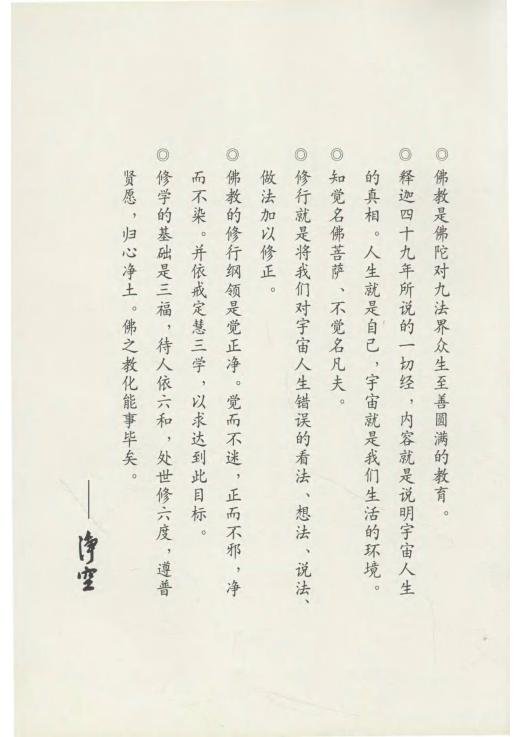 ◎佛教是佛陀对九法界众生至善圆满的教育。
◎释迦四十九年所说的一切经，内容就是说明宇宙人生
的真相。人生就是自己，宇宙就是我们生活的环境。
◎知觉名佛菩萨、不觉名凡夫。
◎修行就是将我们对宇宙人生错误的看法、想法、说法、
做法加以修正。
◎佛教的修行纲领是觉正净。觉而不迷，正而不邪，净
而不染。并依戒定慧三学，以求达到此目标。
◎修学的基础是三福，待人依六和，处世修六度，遵普
贤愿，归心净土。佛之教化能事毕矣。
——净空